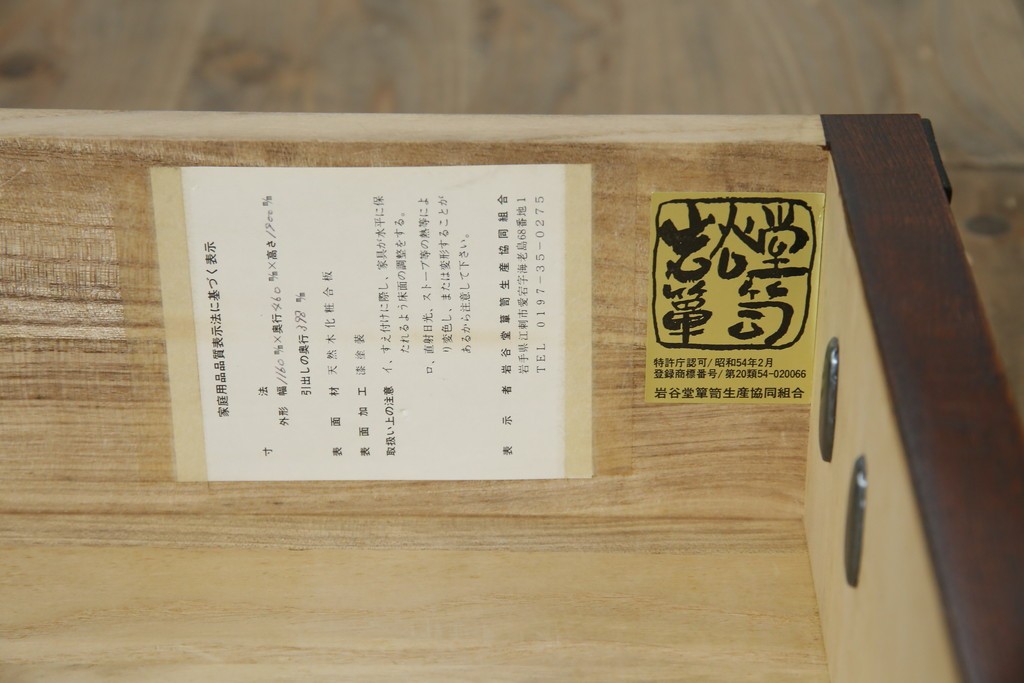 家庭用品品質表示法に基づく表示
寸法
外形 幅1160㎜×奥行460㎜×高さ1900㎜
引出しの奥行398㎜
表面材 天然木化粧合板
表面加工 漆塗装
取扱い上の注意 イ、すえ付けに際し、家具が水平に保
たれるよう床面の調整をする。
ロ、直射日光、ストーブ等の熱等によ
り変色し、または変形することが
あるから注意して下さい。
表示者 岩谷堂簞笥生産協同組合
岩手県江刺市愛宕字海老島68番地1
TEL 0197-35-0275
岩谷堂
簞笥
特許庁認可/昭和54年2月
登録商標番号/第20類54-020066
岩谷堂簞笥生産協同組合